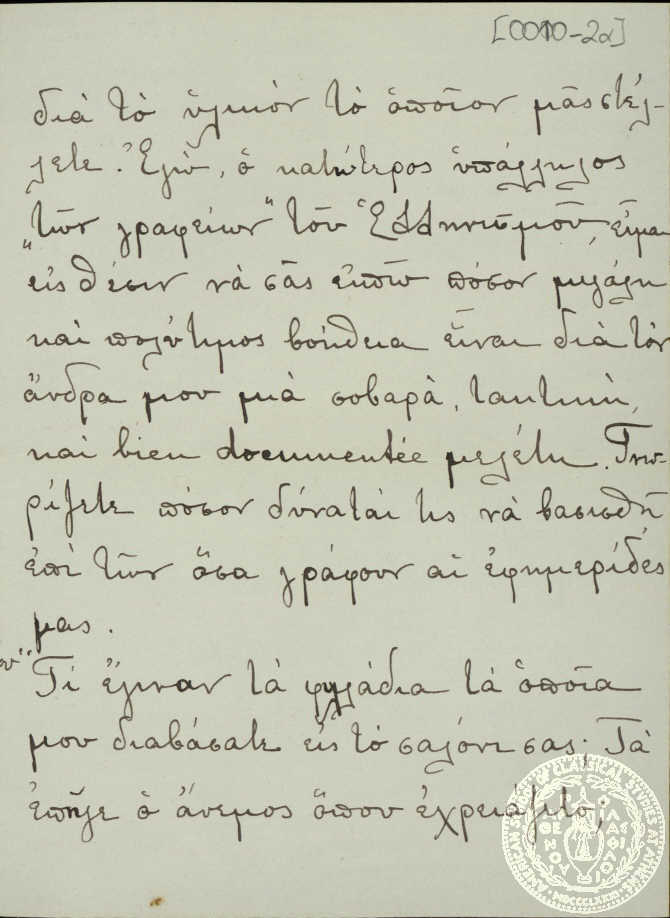 [0010-2α]
διὰ τὸ ὑλικὸν τὸ ὁποῖον μᾶς στέλ-
λετε. Ἐγὼ, ὁ κατώτερος ὑπάλληλος
"τῶν γραφείων" τοῦ Ἑλληνισμοῦ, εἶμαι
εἰς θέσιν νὰ σᾶς εἰπῶ πόσον μεγάλη
καὶ πολύτιμος βοήθεια εἶναι διὰ τὸν
ἄνδρα μου μιὰ σοβαρὰ, τακτικὴ,
καὶ bien documentée μελέτη. Γνω-
ρίζετε πόσον δύναταί τις νὰ βασισθῇ
ἐπὶ τῶν ὅσα γράφουν αἱ ἐφημερίδες
μας.
Τί ἔγιναν τὰ φυλλάδια τὰ ὁποῖα
μου διαβάσατε εἰς τὸ σαλόνι σας; Τὰ
ἐπῆγε ὁ ἄνεμος ὅπου ἐχρειάζετο;
AMERICAN SCHOOL OF CLASSICAL STUDIES AT ATHENS
MDCCCLXXXI